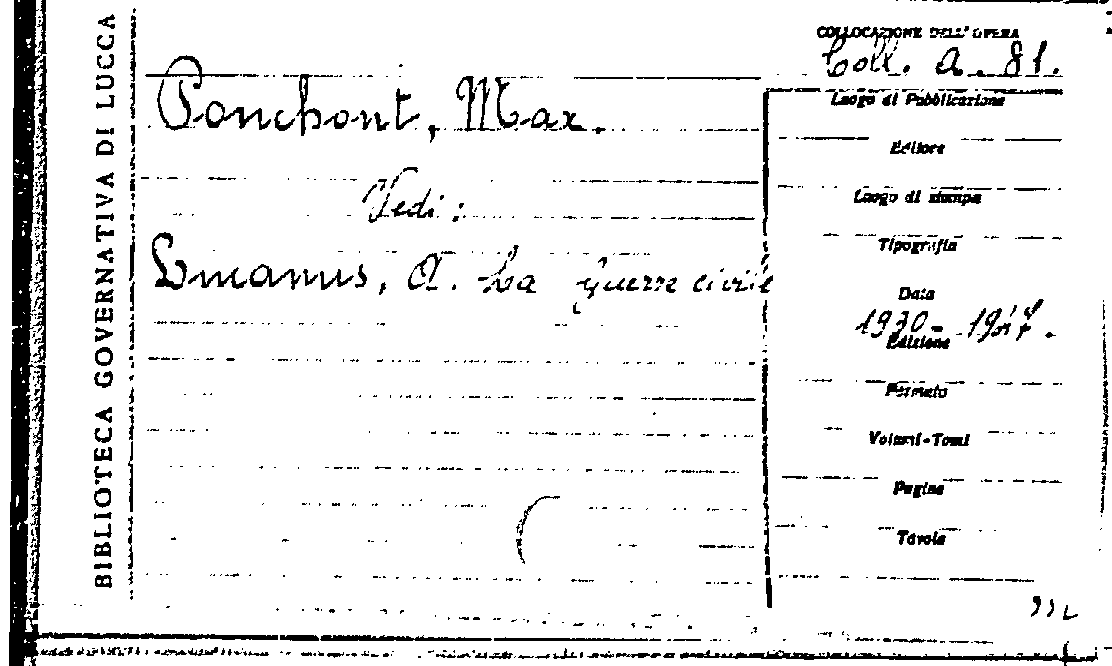 BIBLIOTECA GOVERNATIVA DI LUCCA
COLLOCAZIONE DELL'OPERA
Coll. A. 81.
Ponchont, Max.
Vedi:
Lucanus, A. La guerre civile
Luogo di Pubblicazione
Editore
Luogo di stampa
Tipografia
Data
1930-1947.
Edizione
Formato
Volumi-Tomi
Pagine
Tavole